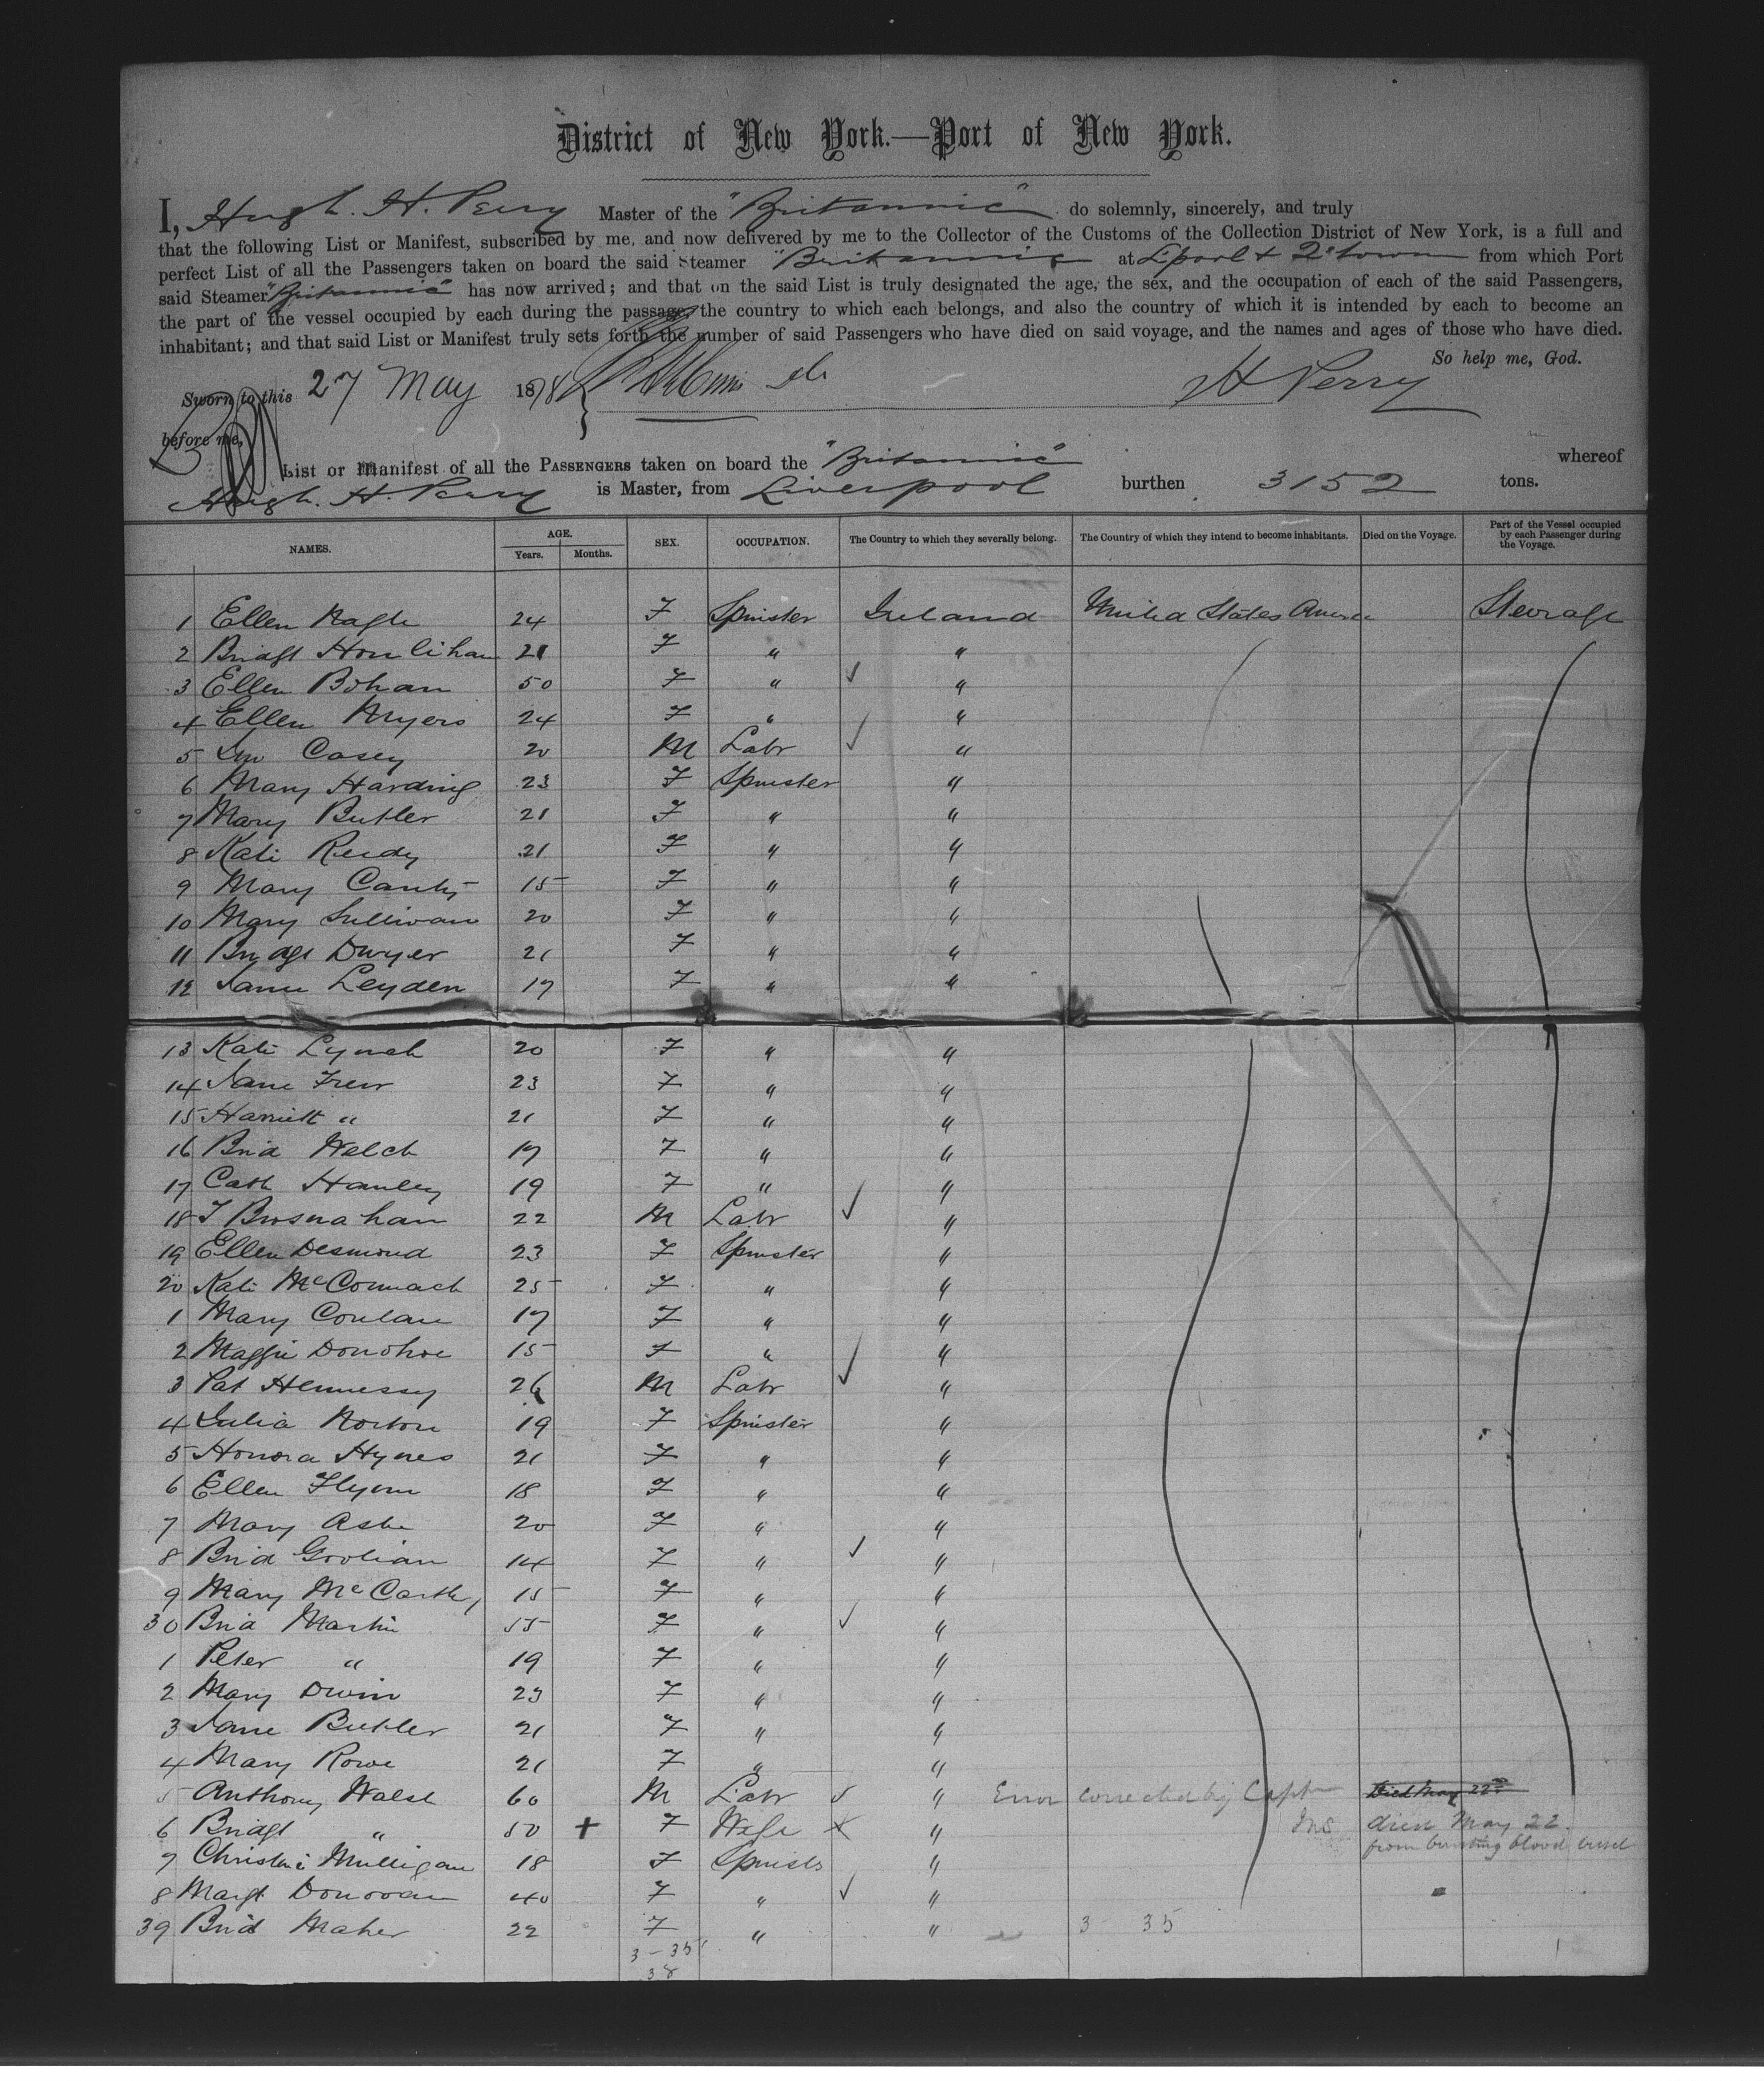 District of New York.—Port of New York.
I, Hugh. H. Perry Master of the "Britannic" do solemnly, sincerely, and truly
that the following List or Manifest, subscribed by me, and now delivered by me to the Collector of the Customs of the Collection District of New York, is a full and
perfect List of all the Passengers taken on board the said Steamer "Britannic at Lpool & Q'town from which Port
said Steamer "Britannic" has now arrived; and that on the said List is truly designated the age, the sex, and the occupation of each of the said Passengers,
the part of the vessel occupied by each during the passage, the country to which each belongs, and also the country of which it is intended by each to become an
inhabitant; and that said List or Manifest truly sets forth the number of said Passengers who have died on said voyage, and the names and ages of those who have died.
So help me, God.
Sworn to this 27 May 1878 H Perry
before me,
List or Manifest of all the PASSENGERS taken on board the "Britannic" whereof
Hugh. H. Perry is Master, from Liverpool burthen 3152 tons.
NAMES. AGE. Years. Months. SEX. OCCUPATION. The Country to which they severally belong. The Country of which they intend to become inhabitants. Died on the Voyage. Part of the Vessel occupied by each Passenger during the Voyage.
1 Ellen Nagle 24 F Spinster Ireland United States America Steerage
2 Bridgt Honlihan 21 F " "
3 Ellen Bohan 50 F " ✓ "
4 Ellen Myers 24 F " "
5 Jno Casey 20 M Labr ✓ "
6 Mary Harding 23 F Spinster "
7 Mary Butler 21 F " "
8 Kate Reidy 21 F " "
9 Mary Canty 15 F " "
10 Mary Sullivan 20 F " "
11 Bridgt Dwyer 21 F " "
12 Jane Leyden 17 F " "
13 Kate Lynch 20 F " "
14 Jane Frew 23 F " "
15 Harriett " 21 F " "
16 Brid Welch 17 F " "
17 Cath Hanley 19 F " "
18 T Brosnahan 22 M Labr ✓ "
19 Ellen Desmond 23 F Spinster "
20 Kate McCormack 25 F " "
1 Mary Conlan 17 F " "
2 Maggie Donohoe 15 F " "
3 Pat Hennessy 26 M Labr ✓ "
4 Julia Norton 19 F Spinster "
5 Honora Hynes 21 F " "
6 Ellen Flynn 18 F " "
7 Mary Ashe 20 F " "
8 Brid Goolian 14 F " ✓ "
9 Mary McCarthy 15 F " "
30 Brid Martin 55 F " ✓ "
1 Peter " 19 F " "
2 Mary Dwin 23 F " "
3 Jane Butler 21 F " "
4 Mary Rowe 21 F " "
5 Anthony Walsh 60 M Labr ✓ " Error corrected by Capt Died May 22nd
6 Bridgt " 50 + F Wife X " Ins died May 22.
from bursting blood vessel
7 Christine Mulligan 18 F Spinster "
8 Margt Donovan 40 F " ✓ "
39 Brid Maher 22 F " " 3 - 35
3 - 35
38